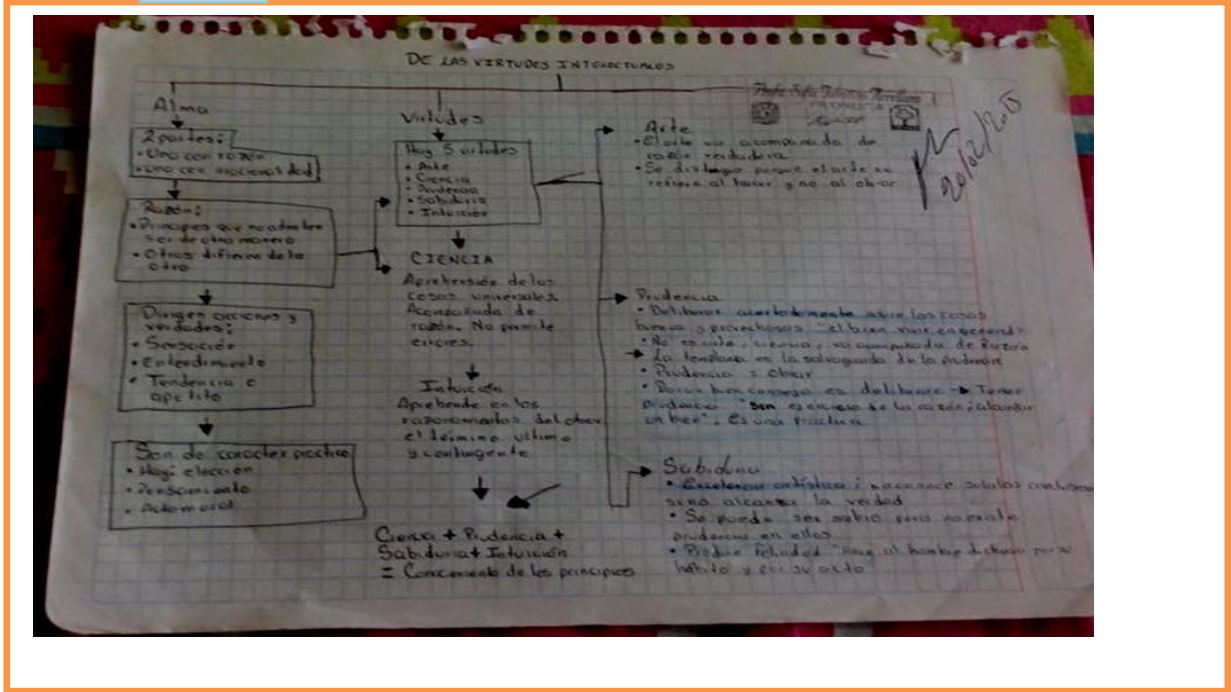 DE LAS VIRTUDES INTELECTUALES
Alma
2 partes:
• Una con razón
• Una con irracionalidad
Razón:
• Principios que no admiten
ser de otra manera
• Otros difieren de la
otro
Dirigen acciones y
verdades:
• Sensación
• Entendimiento
• Tendencia o
apetito
Son de caracter practico
• Hay elección
• Pensamiento
• Acto moral
Virtudes
Hay 5 virtudes
• Arte
• Ciencia
• Prudencia
• Sabiduria
• Intuición
CIENCIA
Aprehensión de las
cosas universales.
Acompañada de
razón. No permite
errores.
Intuición
Aprehende en los
razonamientos del obrar
el término ultimo
y contingente
Ciencia + Prudencia +
Sabiduria + Intuición
= Conocimiento de los principios
Profa. Sofía
Arte
• El arte va acompañada de
razón verdadera
• Se distingue porque el arte se
refiere al hacer y no al obrar
20/02/2015
Prudencia
• Deliberar acertadamente sobre las cosas
buenas y provechosas "el bien vivir en general"
• No es arte, ciencia, va acompañada de Razón
La templanza es la salvaguarda de la prudencia
• Prudencia = obrar
• Dar un buen consejo es deliberar → Tener
prudencia "Sin ejercicio de la razón, alcanzar
un bien". Es una practica
Sabiduria
• Excelencia artística; no conoce solo las conclusiones
sino alcanzar la verdad
• Se puede ser sabio pero no existe
prudencia en ellos
• Produce felicidad "Hace al hombre dichoso por su
hábito y por su acto"